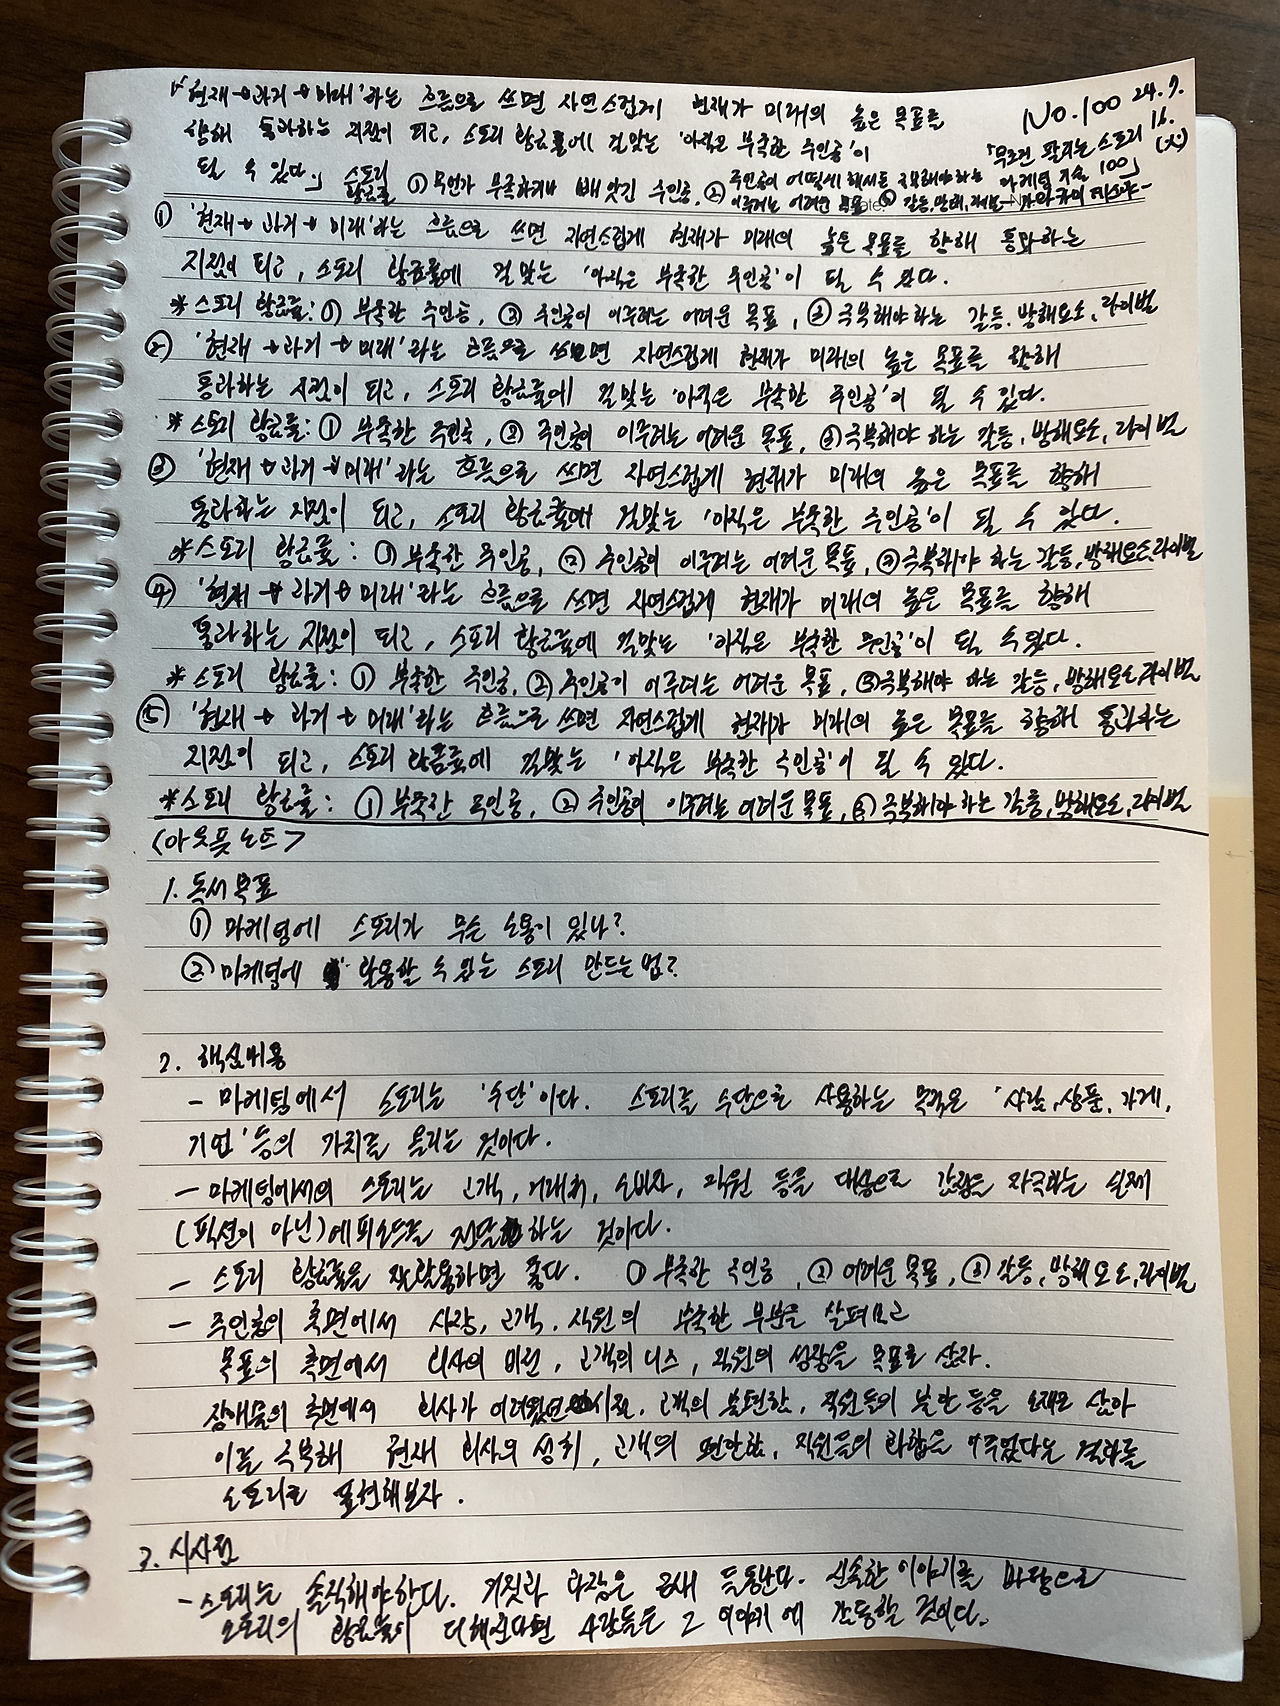 「'현재→과거→미래'라는 흐름으로 쓰면 자연스럽게 현재가 미래의 높은 목표를
No.100 24.9.16.(火)
향해 통과하는 지점이 되고, 스토리 황금률에 걸맞는 '아직은 부족한 주인공'이
될 수 있다.」
「무조건 팔리는 스토리 마케팅 기술 100」
스토리 황금률 ① 무언가 부족하거나 빼앗긴 주인공, ② 주인공이 어떻게 해서든 극복해야하는 이루려는 어려운 목표 ③ 갈등, 방해, 라이벌
① '현재→과거→미래'라는 흐름으로 쓰면 자연스럽게 현재가 미래의 높은 목표를 향해 통과하는
지점이 되고, 스토리 황금률에 걸맞는 '아직은 부족한 주인공'이 될 수 있다.
* 스토리 황금률: ① 부족한 주인공, ② 주인공이 이루려는 어려운 목표, ③ 극복해야하는 갈등, 방해요소, 라이벌
② '현재→과거→미래'라는 흐름으로 쓰면 자연스럽게 현재가 미래의 높은 목표를 향해
통과하는 지점이 되고, 스토리 황금률에 걸맞는 '아직은 부족한 주인공'이 될 수 있다.
* 스토리 황금률: ① 부족한 주인공, ② 주인공이 이루려는 어려운 목표, ③ 극복해야 하는 갈등, 방해요소, 라이벌
③ '현재→과거→미래'라는 흐름으로 쓰면 자연스럽게 현재가 미래의 높은 목표를 향해
통과하는 지점이 되고, 스토리 황금률에 걸맞는 '아직은 부족한 주인공'이 될 수 있다.
* 스토리 황금률: ① 부족한 주인공, ② 주인공이 이루려는 어려운 목표, ③ 극복해야 하는 갈등, 방해요소, 라이벌
④ '현재→과거→미래'라는 흐름으로 쓰면 자연스럽게 현재가 미래의 높은 목표를 향해
통과하는 지점이 되고, 스토리 황금률에 걸맞는 '아직은 부족한 주인공'이 될 수 있다.
* 스토리 황금률: ① 부족한 주인공, ② 주인공이 이루려는 어려운 목표, ③ 극복해야 하는 갈등, 방해요소, 라이벌
⑤ '현재→과거→미래'라는 흐름으로 쓰면 자연스럽게 현재가 미래의 높은 목표를 향해 통과하는
지점이 되고, 스토리 황금률에 걸맞는 '아직은 부족한 주인공'이 될 수 있다.
* 스토리 황금률: ① 부족한 주인공, ② 주인공이 이루려는 어려운 목표, ③ 극복해야 하는 갈등, 방해요소, 라이벌
<아웃풋 노트>
1. 독서 목표
① 마케팅에 스토리가 무슨 소용이 있나?
② 마케팅에 활용할 수 있는 스토리 만드는 법?
2. 핵심내용
- 마케팅에서 스토리는 '수단'이다. 스토리를 수단으로 사용하는 목적은 '사람, 상품, 가게,
기업' 등의 가치를 올리는 것이다.
- 마케팅에서의 스토리는 고객, 거래처, 소비자, 직원 등을 대상으로 감정을 자극하는 실제
(픽션이 아닌) 에피소드를 전달하는 것이다.
- 스토리 황금률을 잘 활용하면 좋다. ① 부족한 주인공, ② 어려운 목표, ③ 갈등, 방해요소, 라이벌
- 주인공의 측면에서 사장, 고객, 직원의 부족한 부분을 살펴보고
목표의 측면에서 회사의 비전, 고객의 니즈, 직원의 성장을 목표로 삼자.
장애물의 측면에서 회사가 어려웠던 시절, 고객의 불편함, 직원들의 불만 등을 소재로 삼아
이를 극복해 현재 회사의 성취, 고객의 편안함, 직원들의 화합을 이루었다는 결과를
스토리로 표현해보자.
3. 시사점
- 스토리는 솔직해야한다. 거짓과 과장은 금새 들통난다. 진솔한 이야기를 바탕으로
스토리의 황금률이 더해진다면 사람들은 그 이야기에 감동할 것이다.